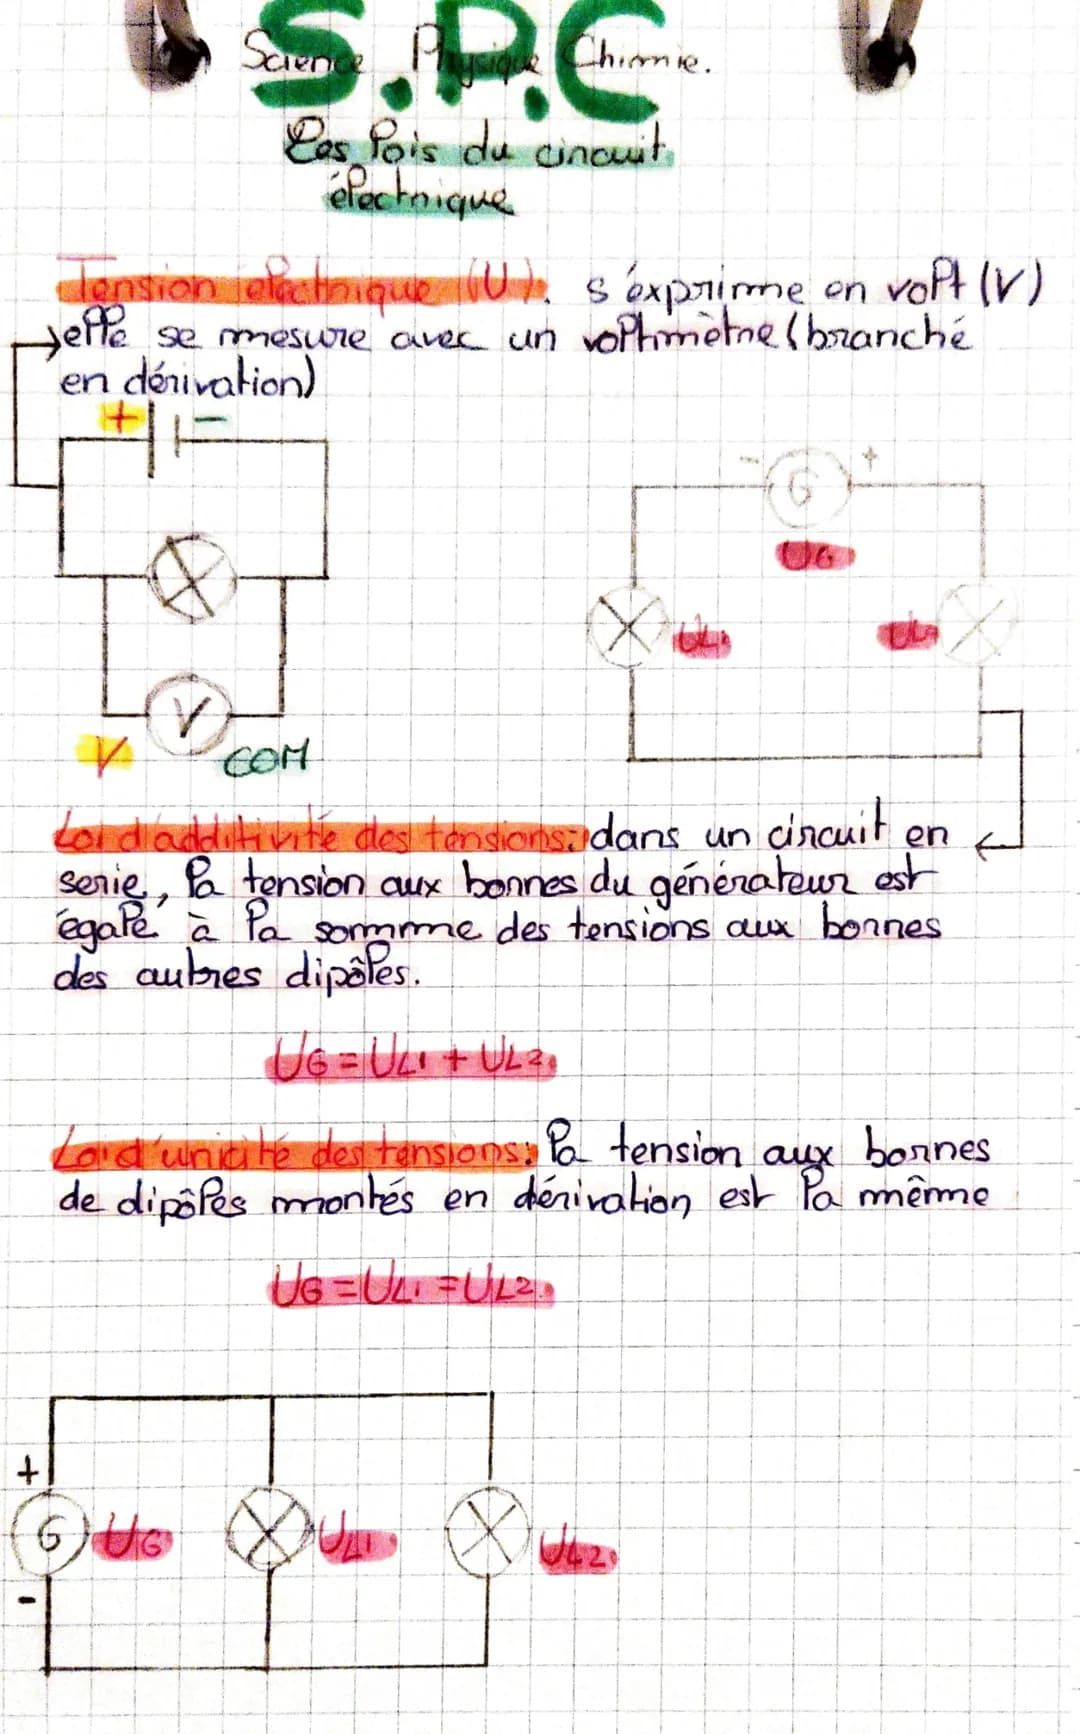 S.P.C
Science Physique Chimie.
Les lois du circuit
électrique
Tension électrique (U): s'exprime en volt (V)
→ elle se mesure avec un voltmètre (branché
en dérivation)
+ -
- G +
UG
UL1 UL2
V
V COM
Loi d'additivité des tensions: dans un circuit en
serie, la tension aux bornes du générateur est
égale à la somme des tensions aux bornes
des autres dipôles.
UG = UL1 + UL2.
Loi d'unicité des tensions: la tension aux bornes
de dipôles montés en dérivation est la même
UG = UL1 = UL2.
+
G UG UL1 UL2.
-